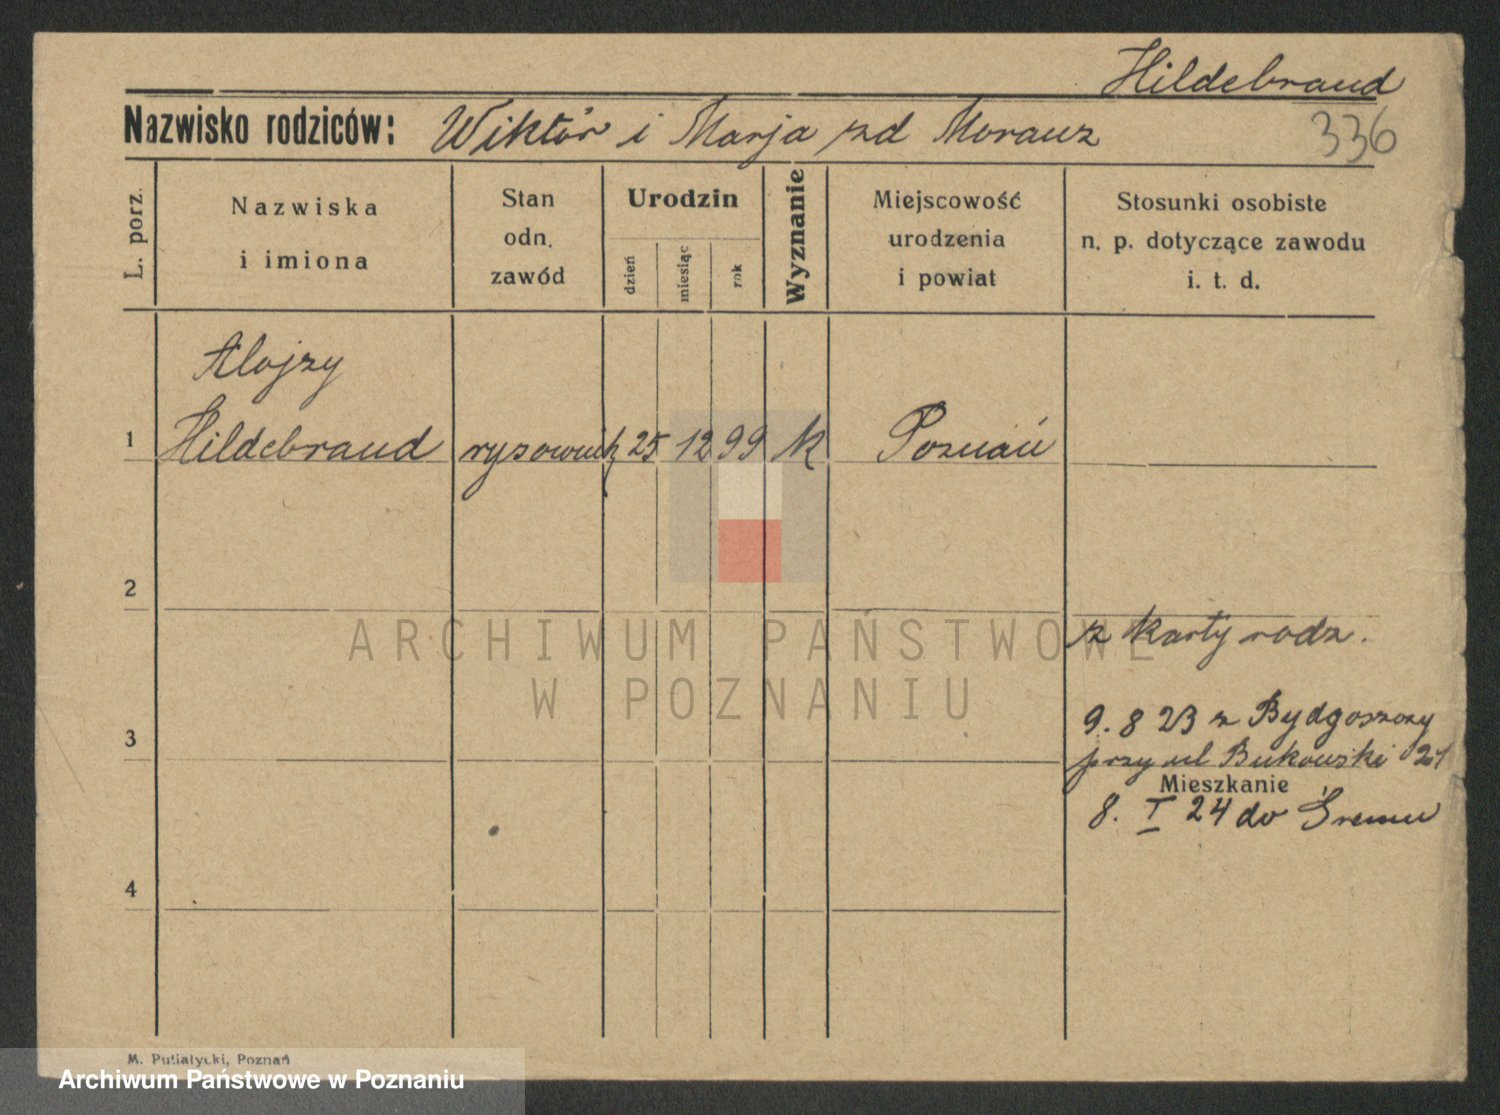 Hildebrand
Nazwisko rodziców: Wiktór i Marja zd Morawz
336
L. porz.
Nazwiska
i imiona
Stan
odn.
zawód
Urodzin
dzień
miesiąc
rok
Wyznanie
Miejscowość
urodzenia
i powiat
Stosunki osobiste
n. p. dotyczące zawodu
i. t. d.
Alojzy
1 Hildebrand rysownik 25 12 99 k Poznań
2
z karty rodz.
3
9. 8 23 z Bydgoszczy
przy ul Bukowski 21
Mieszkanie
8. I 24 do Śremu
4
ARCHIWUM PAŃSTWOWE
W POZNANIU
M. Putiatycki, Poznań
Archiwum Państwowe w Poznaniu